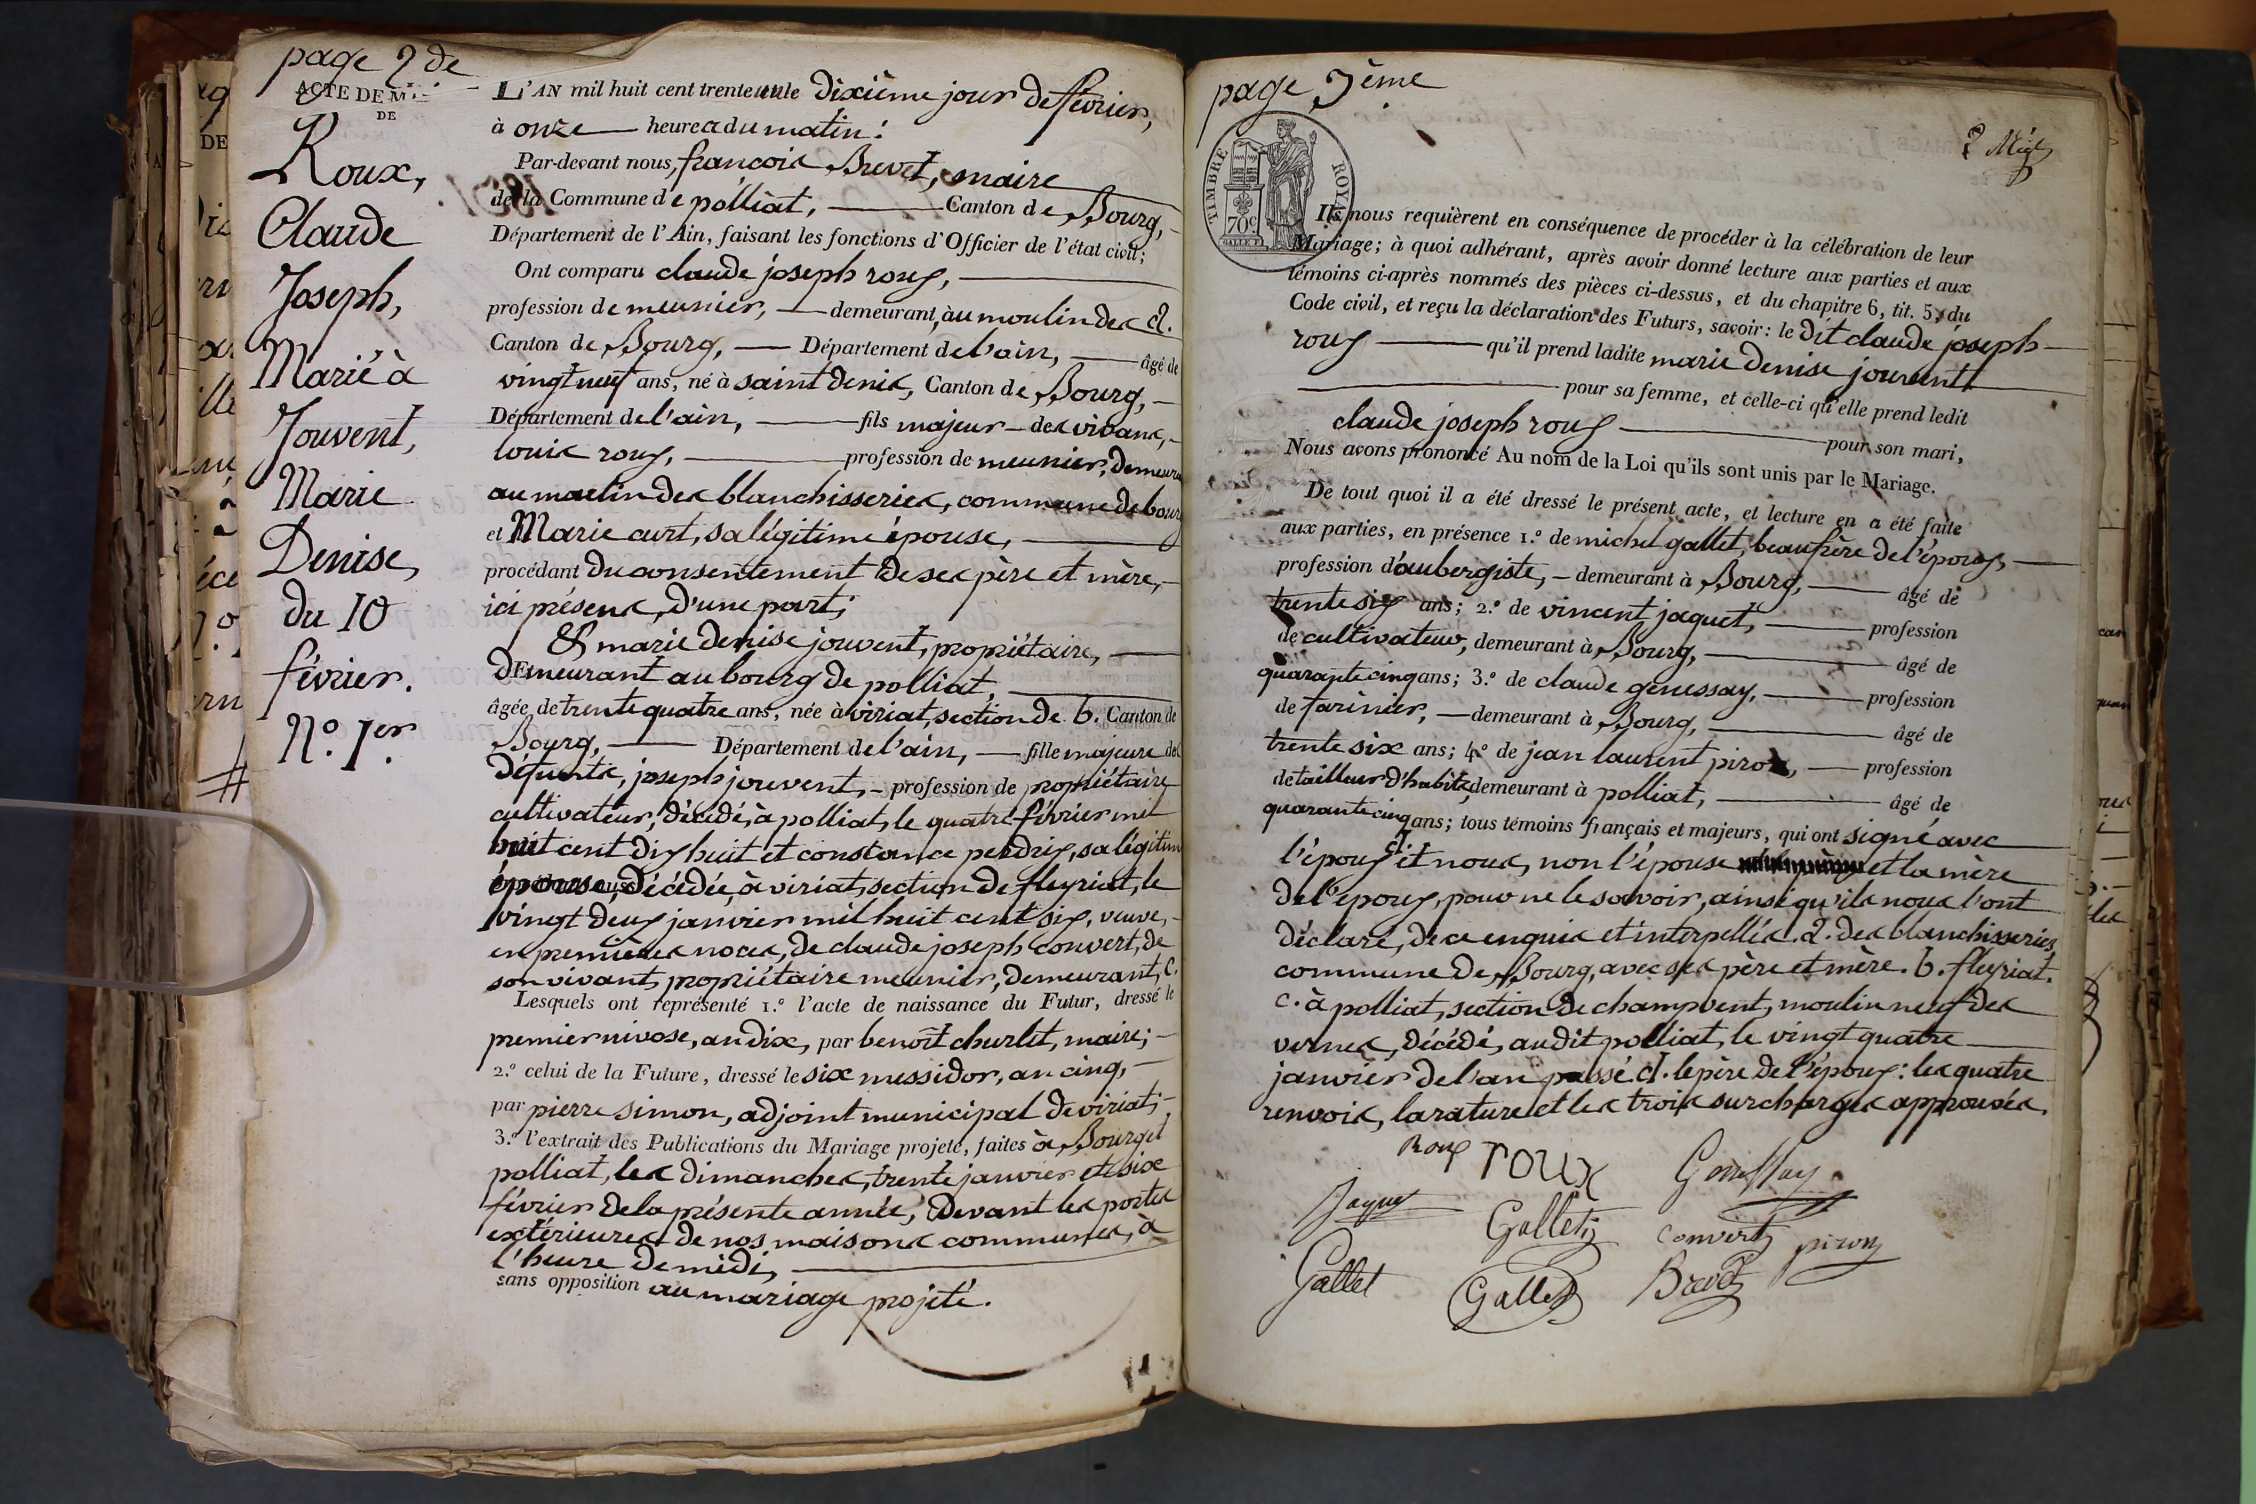 page 2de
ACTE DE M
DE
Roux,
Claude
Joseph,
Marié à
Jouvent,
Marie
Denise,
du 10
février.
N.º 1er.
L'AN mil huit cent trente un le dixième jour de février,
à onze heures du matin:
Par-devant nous, françois Brevet, maire
de la Commune de polliat, Canton de Bourg,
Département de l'Ain, faisant les fonctions d'Officier de l'état civil;
Ont comparu claude joseph roux,
profession de meunier, demeurant, au moulin des a.
Canton de Bourg, Département de l'ain, âgé de
vingt neuf ans, né à saint denis, Canton de Bourg,
Département de l'ain, fils majeur des vivans,
louis roux, profession de meunier, demeura
au moulin des blanchisseries, commune de bourg
et Marie curt, sa légitime épouse,
procédant du consentement de ses père et mère,
ici présens, d'une part;
Et marie denise jouvent, propriétaire,
demeurant au bourg de polliat,
âgée de trente quatre ans, née à viriat, section de b. Canton de
Bourg, Département de l'ain, fille majeure des
défunts, joseph jouvent, profession de propriétaire
cultivateur, décédé, à polliat, le quatre février mil
huit cent dix huit et constance perdrix, sa légitim
épouse, décédée, à viriat, section de fleyriat, le
vingt deux janvier mil huit cent six, veuve,
en premières noces, de claude joseph convert, de
son vivant, propriétaire meunier, demeurant, c.
Lesquels ont représenté 1.º l'acte de naissance du Futur, dressé le
premier nivose, an dix, par benoît churlet, maire;
2.º celui de la Future, dressé le six messidor, an cinq,
par pierre simon, adjoint municipal de viriat;
3.º l'extrait des Publications du Mariage projeté, faites à Bourg et
polliat, les dimanches, trente janvier et six
février de la présente année, devant les portes
extérieures de nos maisons communes, à
l'heure de midi,
sans opposition au mariage projeté.
page 3ème
TIMBRE ROYAL
70c
Ils nous requièrent en conséquence de procéder à la célébration de leur
Mariage; à quoi adhérant, après avoir donné lecture aux parties et aux
témoins ci-après nommés des pièces ci-dessus, et du chapitre 6, tit. 5, du
Code civil, et reçu la déclaration des Futurs, savoir: le dit claude joseph
roux qu'il prend ladite marie denise jouvent
pour sa femme, et celle-ci qu'elle prend ledit
claude joseph roux pour son mari,
Nous avons prononcé Au nom de la Loi qu'ils sont unis par le Mariage.
De tout quoi il a été dressé le présent acte, et lecture en a été faite
aux parties, en présence 1.º de michel gallet, beaufrère de l'époux,
profession d'aubergiste, demeurant à Bourg, âgé de
trente six ans; 2.º de vincent jaquet, profession
de cultivateur, demeurant à Bourg, âgé de
quarante cinq ans; 3.º de claude genessay, profession
de farinier, demeurant à Bourg, âgé de
trente six ans; 4.º de jean laurent piron, profession
de tailleur d'habits, demeurant à polliat, âgé de
quarante cinq ans; tous témoins français et majeurs, qui ont signé avec
l'époux d. et nous, non l'épouse et la mère
de l'époux, pour ne le savoir, ainsi qu'ils nous l'ont
déclaré, de ce enquis et interpellés. a. des blanchisseries
commune de Bourg, avec ses père et mère. b. fleyriat.
c. à polliat, section de champvent, moulin neuf des
vernes, décédé, audit polliat, le vingt quatre
janvier de l'an passé. d. le père de l'époux: les quatre
renvois, la rature et les trois surcharges approuvés.
Roux roux Genessay
Jaquet Gallet convert piron
Gallet Gallet Brevet